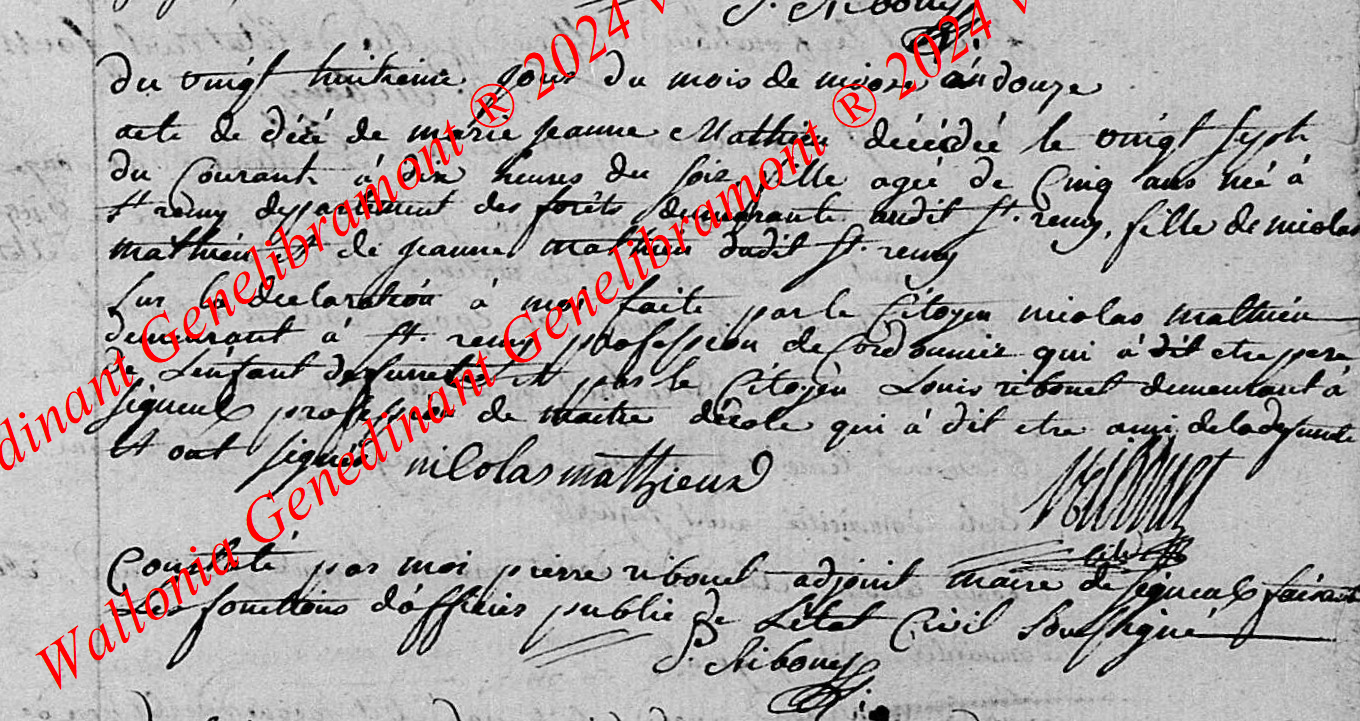 P. Ribouy
du vingt huitieme jour du mois de nivose an douze
acte de décé de marie jeanne Mathieu décédée le vingt sept
du Courant à dix heures du soir, fille agée de Cinq ans née à
St remy departement des forêts demeurante audit St. remy, fille de nicolas
mathieu et de jeanne mathieu dudit St. remy
sur la declaration à moi faite par le Citoyen nicolas mathieu
demeurant à St. remy profession de Cordonnier qui à dit etre pere
de L'enfant defunte et par le Citoyen Louis ribonet demeurant à
signeulx profession de maitre décole qui à dit etre ami de la defunte
Et ont signés nicolas mathieux
Constaté par moi pierre ribonet adjoint maire de signeulx faisant
Les fonctions d'officier public de L'état Civil Soussigné
P. Ribouy
Wallonia Genedinant Genelibramont ® 2024
edinant Genelibramont ® 2024